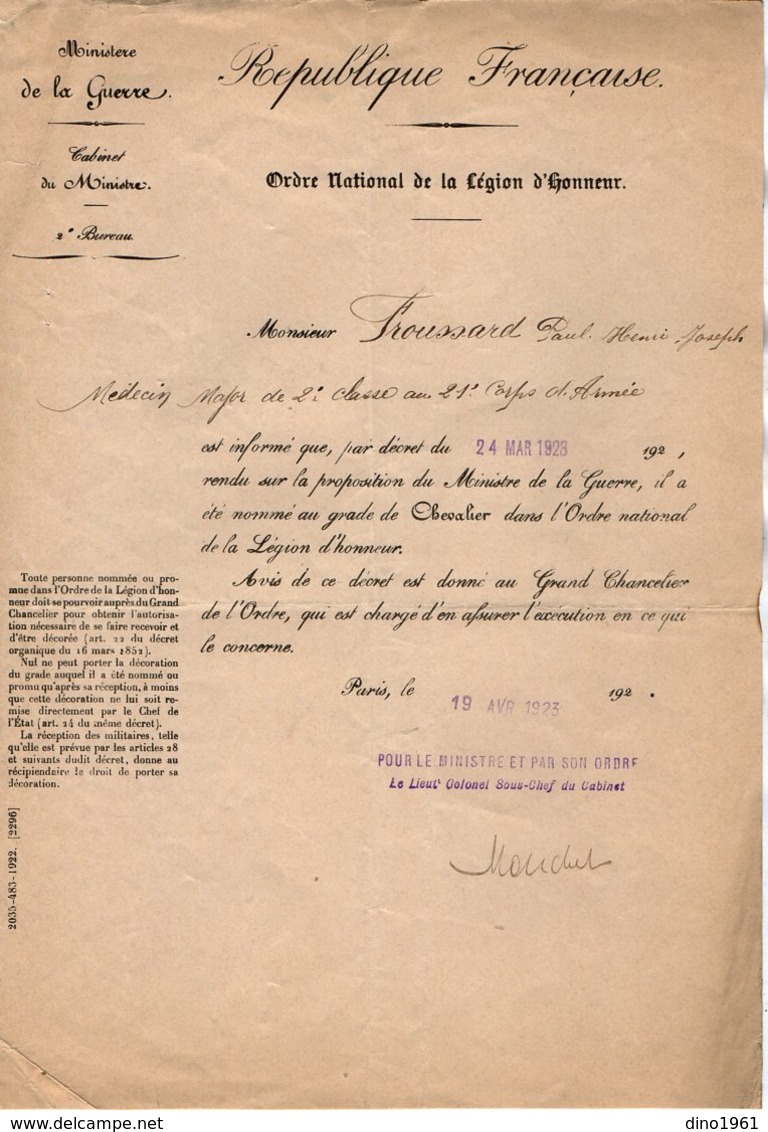 Ministere
de la Guerre.
Cabinet
du Ministre.
2e Bureau.
République Française.
Ordre National de la Légion d'Honneur.
Monsieur Froussard Paul. Henri Joseph
Médecin Major de 2e classe au 21e Corps d'Armée
est informé que, par décret du 24 MAR 1923 192 ,
rendu sur la proposition du Ministre de la Guerre, il a
été nommé au grade de Chevalier dans l'Ordre national
de la Légion d'honneur.
Avis de ce décret est donné au Grand Chancelier
de l'Ordre, qui est chargé d'en assurer l'exécution en ce qui
le concerne.
Paris, le 19 AVR 1923 192 .
POUR LE MINISTRE ET PAR SON ORDRE
Le Lieutt Colonel Sous-Chef du Cabinet
Toute personne nommée ou pro-
mue dans l'Ordre de la Légion d'hon-
neur doit se pourvoir auprès du Grand
Chancelier pour obtenir l'autorisa-
tion nécessaire de se faire recevoir et
d'être décorée (art. 22 du décret
organique du 16 mars 1852).
Nul ne peut porter la décoration
du grade auquel il a été nommé ou
promu qu'après sa réception, à moins
que cette décoration ne lui soit re-
mise directement par le Chef de
l'État (art. 24 du même décret).
La réception des militaires, telle
qu'elle est prévue par les articles 28
et suivants dudit décret, donne au
récipiendaire le droit de porter sa
décoration.
2035-483-1922. [2296]
www.delcampe.net
dino1961